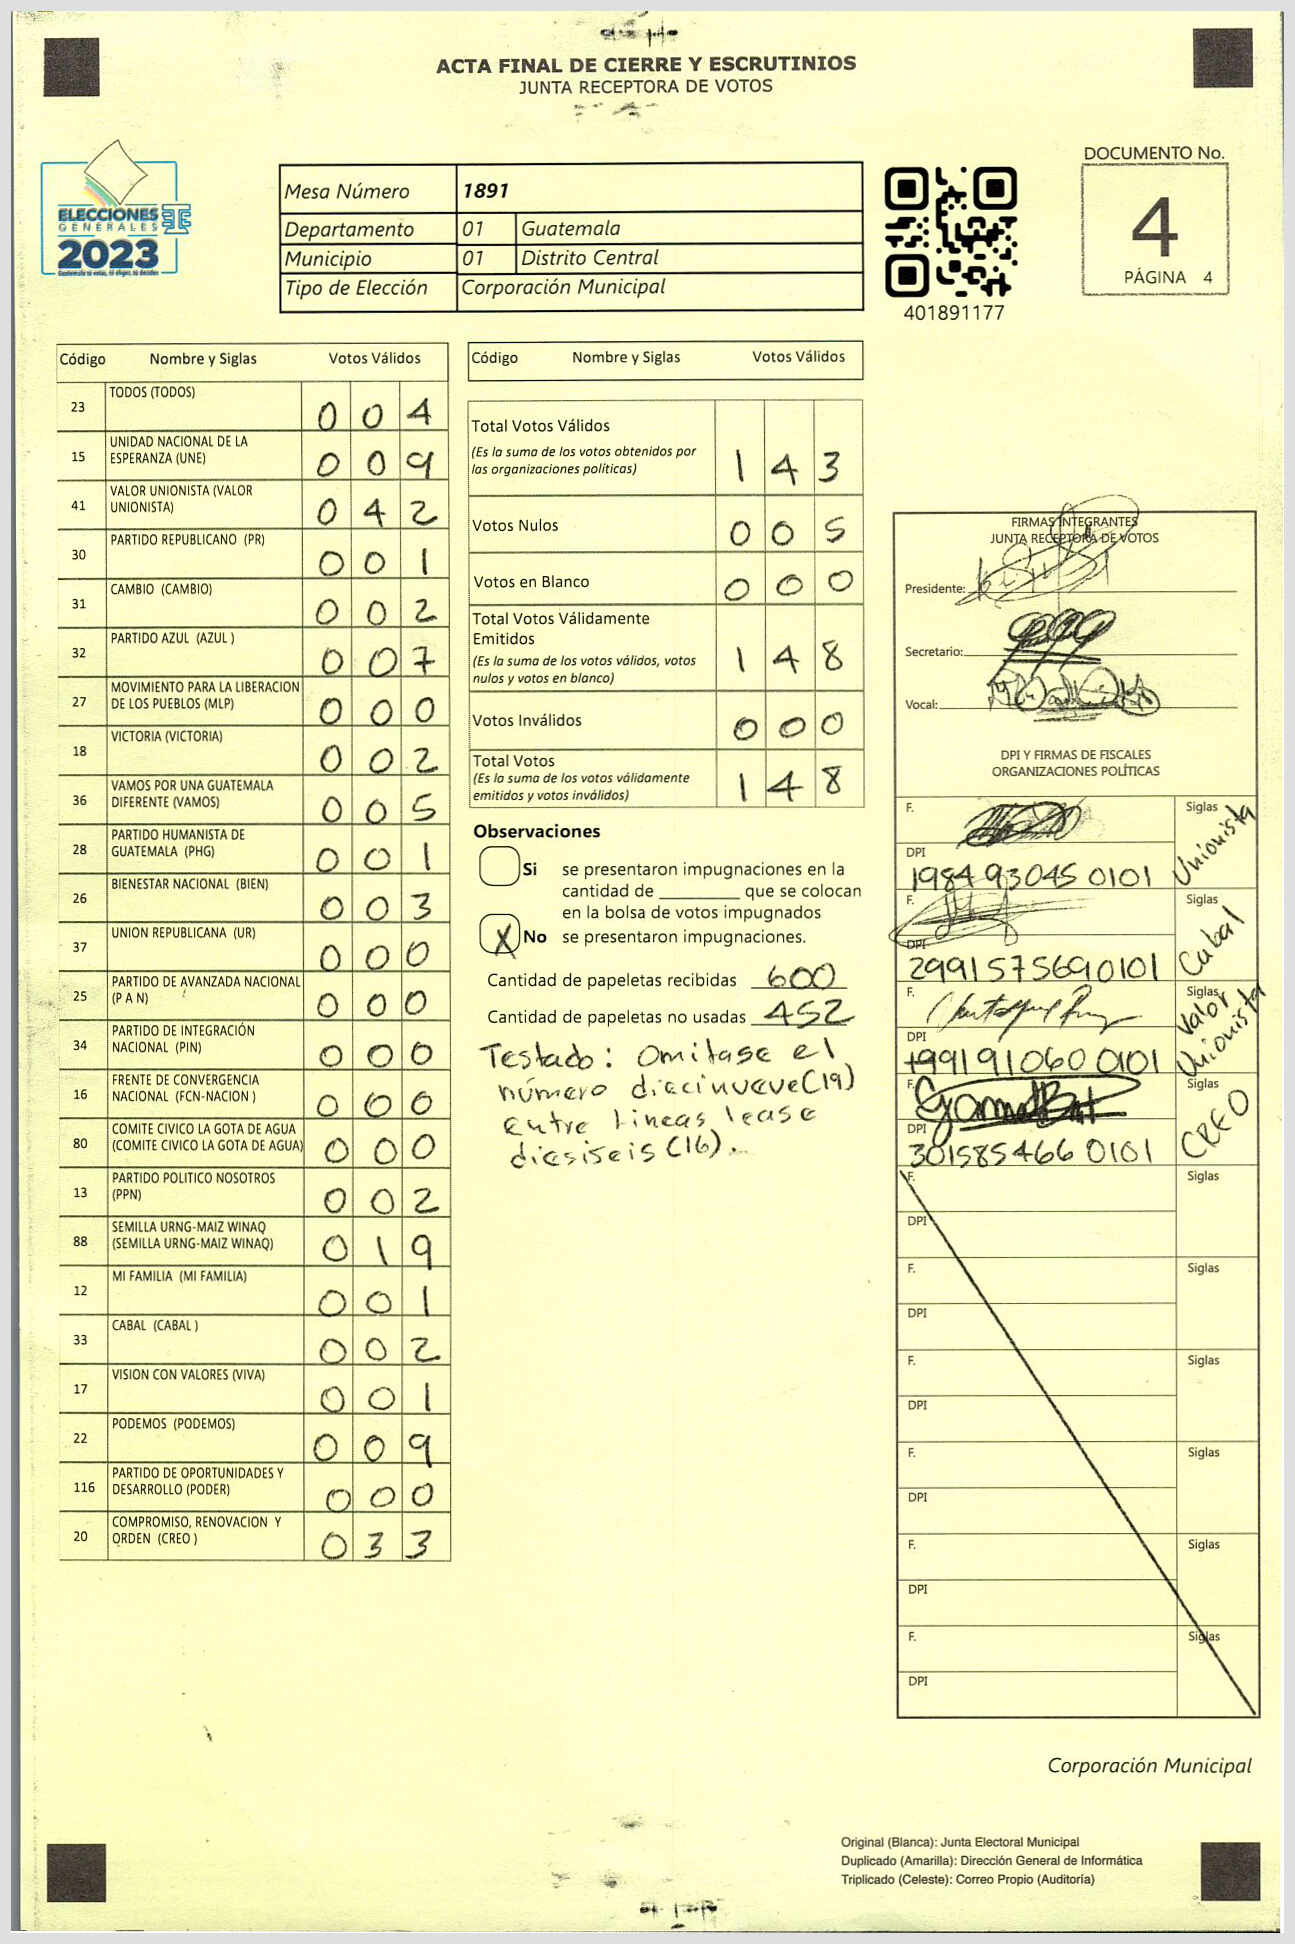 ACTA FINAL DE CIERRE Y ESCRUTINIOS
JUNTA RECEPTORA DE VOTOS
ELECCIONES
GENERALES
2023
Mesa Número 1891
Departamento 01 Guatemala
Municipio 01 Distrito Central
Tipo de Elección Corporación Municipal
401891177
DOCUMENTO No.
4
PÁGINA 4
Código Nombre y Siglas Votos Válidos
23 TODOS (TODOS) 0 0 4
15 UNIDAD NACIONAL DE LA
ESPERANZA (UNE) 0 0 9
41 VALOR UNIONISTA (VALOR
UNIONISTA) 0 4 2
30 PARTIDO REPUBLICANO (PR) 0 0 1
31 CAMBIO (CAMBIO) 0 0 2
32 PARTIDO AZUL (AZUL ) 0 0 7
27 MOVIMIENTO PARA LA LIBERACION
DE LOS PUEBLOS (MLP) 0 0 0
18 VICTORIA (VICTORIA) 0 0 2
36 VAMOS POR UNA GUATEMALA
DIFERENTE (VAMOS) 0 0 5
28 PARTIDO HUMANISTA DE
GUATEMALA (PHG) 0 0 1
26 BIENESTAR NACIONAL (BIEN) 0 0 3
37 UNION REPUBLICANA (UR) 0 0 0
25 PARTIDO DE AVANZADA NACIONAL
(P A N) 0 0 0
34 PARTIDO DE INTEGRACIÓN
NACIONAL (PIN) 0 0 0
16 FRENTE DE CONVERGENCIA
NACIONAL (FCN-NACION ) 0 0 0
80 COMITE CIVICO LA GOTA DE AGUA
(COMITE CIVICO LA GOTA DE AGUA) 0 0 0
13 PARTIDO POLITICO NOSOTROS
(PPN) 0 0 2
88 SEMILLA URNG-MAIZ WINAQ
(SEMILLA URNG-MAIZ WINAQ) 0 1 9
12 MI FAMILIA (MI FAMILIA) 0 0 1
33 CABAL (CABAL ) 0 0 2
17 VISION CON VALORES (VIVA) 0 0 1
22 PODEMOS (PODEMOS) 0 0 9
116 PARTIDO DE OPORTUNIDADES Y
DESARROLLO (PODER) 0 0 0
20 COMPROMISO, RENOVACION Y
ORDEN (CREO ) 0 3 3
Código Nombre y Siglas Votos Válidos
Total Votos Válidos
(Es la suma de los votos obtenidos por
las organizaciones políticas) 1 4 3
Votos Nulos 0 0 5
Votos en Blanco 0 0 0
Total Votos Válidamente
Emitidos
(Es la suma de los votos válidos, votos
nulos y votos en blanco) 1 4 8
Votos Inválidos 0 0 0
Total Votos
(Es la suma de los votos válidamente
emitidos y votos inválidos) 1 4 8
Observaciones
Si se presentaron impugnaciones en la
cantidad de ________ que se colocan
en la bolsa de votos impugnados
X No se presentaron impugnaciones.
Cantidad de papeletas recibidas 600
Cantidad de papeletas no usadas 452
Testado: Omitase el
número diecinueve (19)
entre lineas lease
diesiseis (16).
FIRMAS INTEGRANTES
JUNTA RECEPTORA DE VOTOS
Presidente:
Secretario:
Vocal:
DPI Y FIRMAS DE FISCALES
ORGANIZACIONES POLÍTICAS
F. Siglas Unionista
DPI 1984 93045 0101
F. Siglas Cabal
DPI 2991575690101
F. Siglas Valor Unionista
DPI 1991 91060 0101
F. Siglas CREO
DPI 301585466 0101
F. Siglas
DPI
F. Siglas
DPI
F. Siglas
DPI
F. Siglas
DPI
F. Siglas
DPI
F. Siglas
DPI
Corporación Municipal
Original (Blanca): Junta Electoral Municipal
Duplicado (Amarilla): Dirección General de Informática
Triplicado (Celeste): Correo Propio (Auditoría)